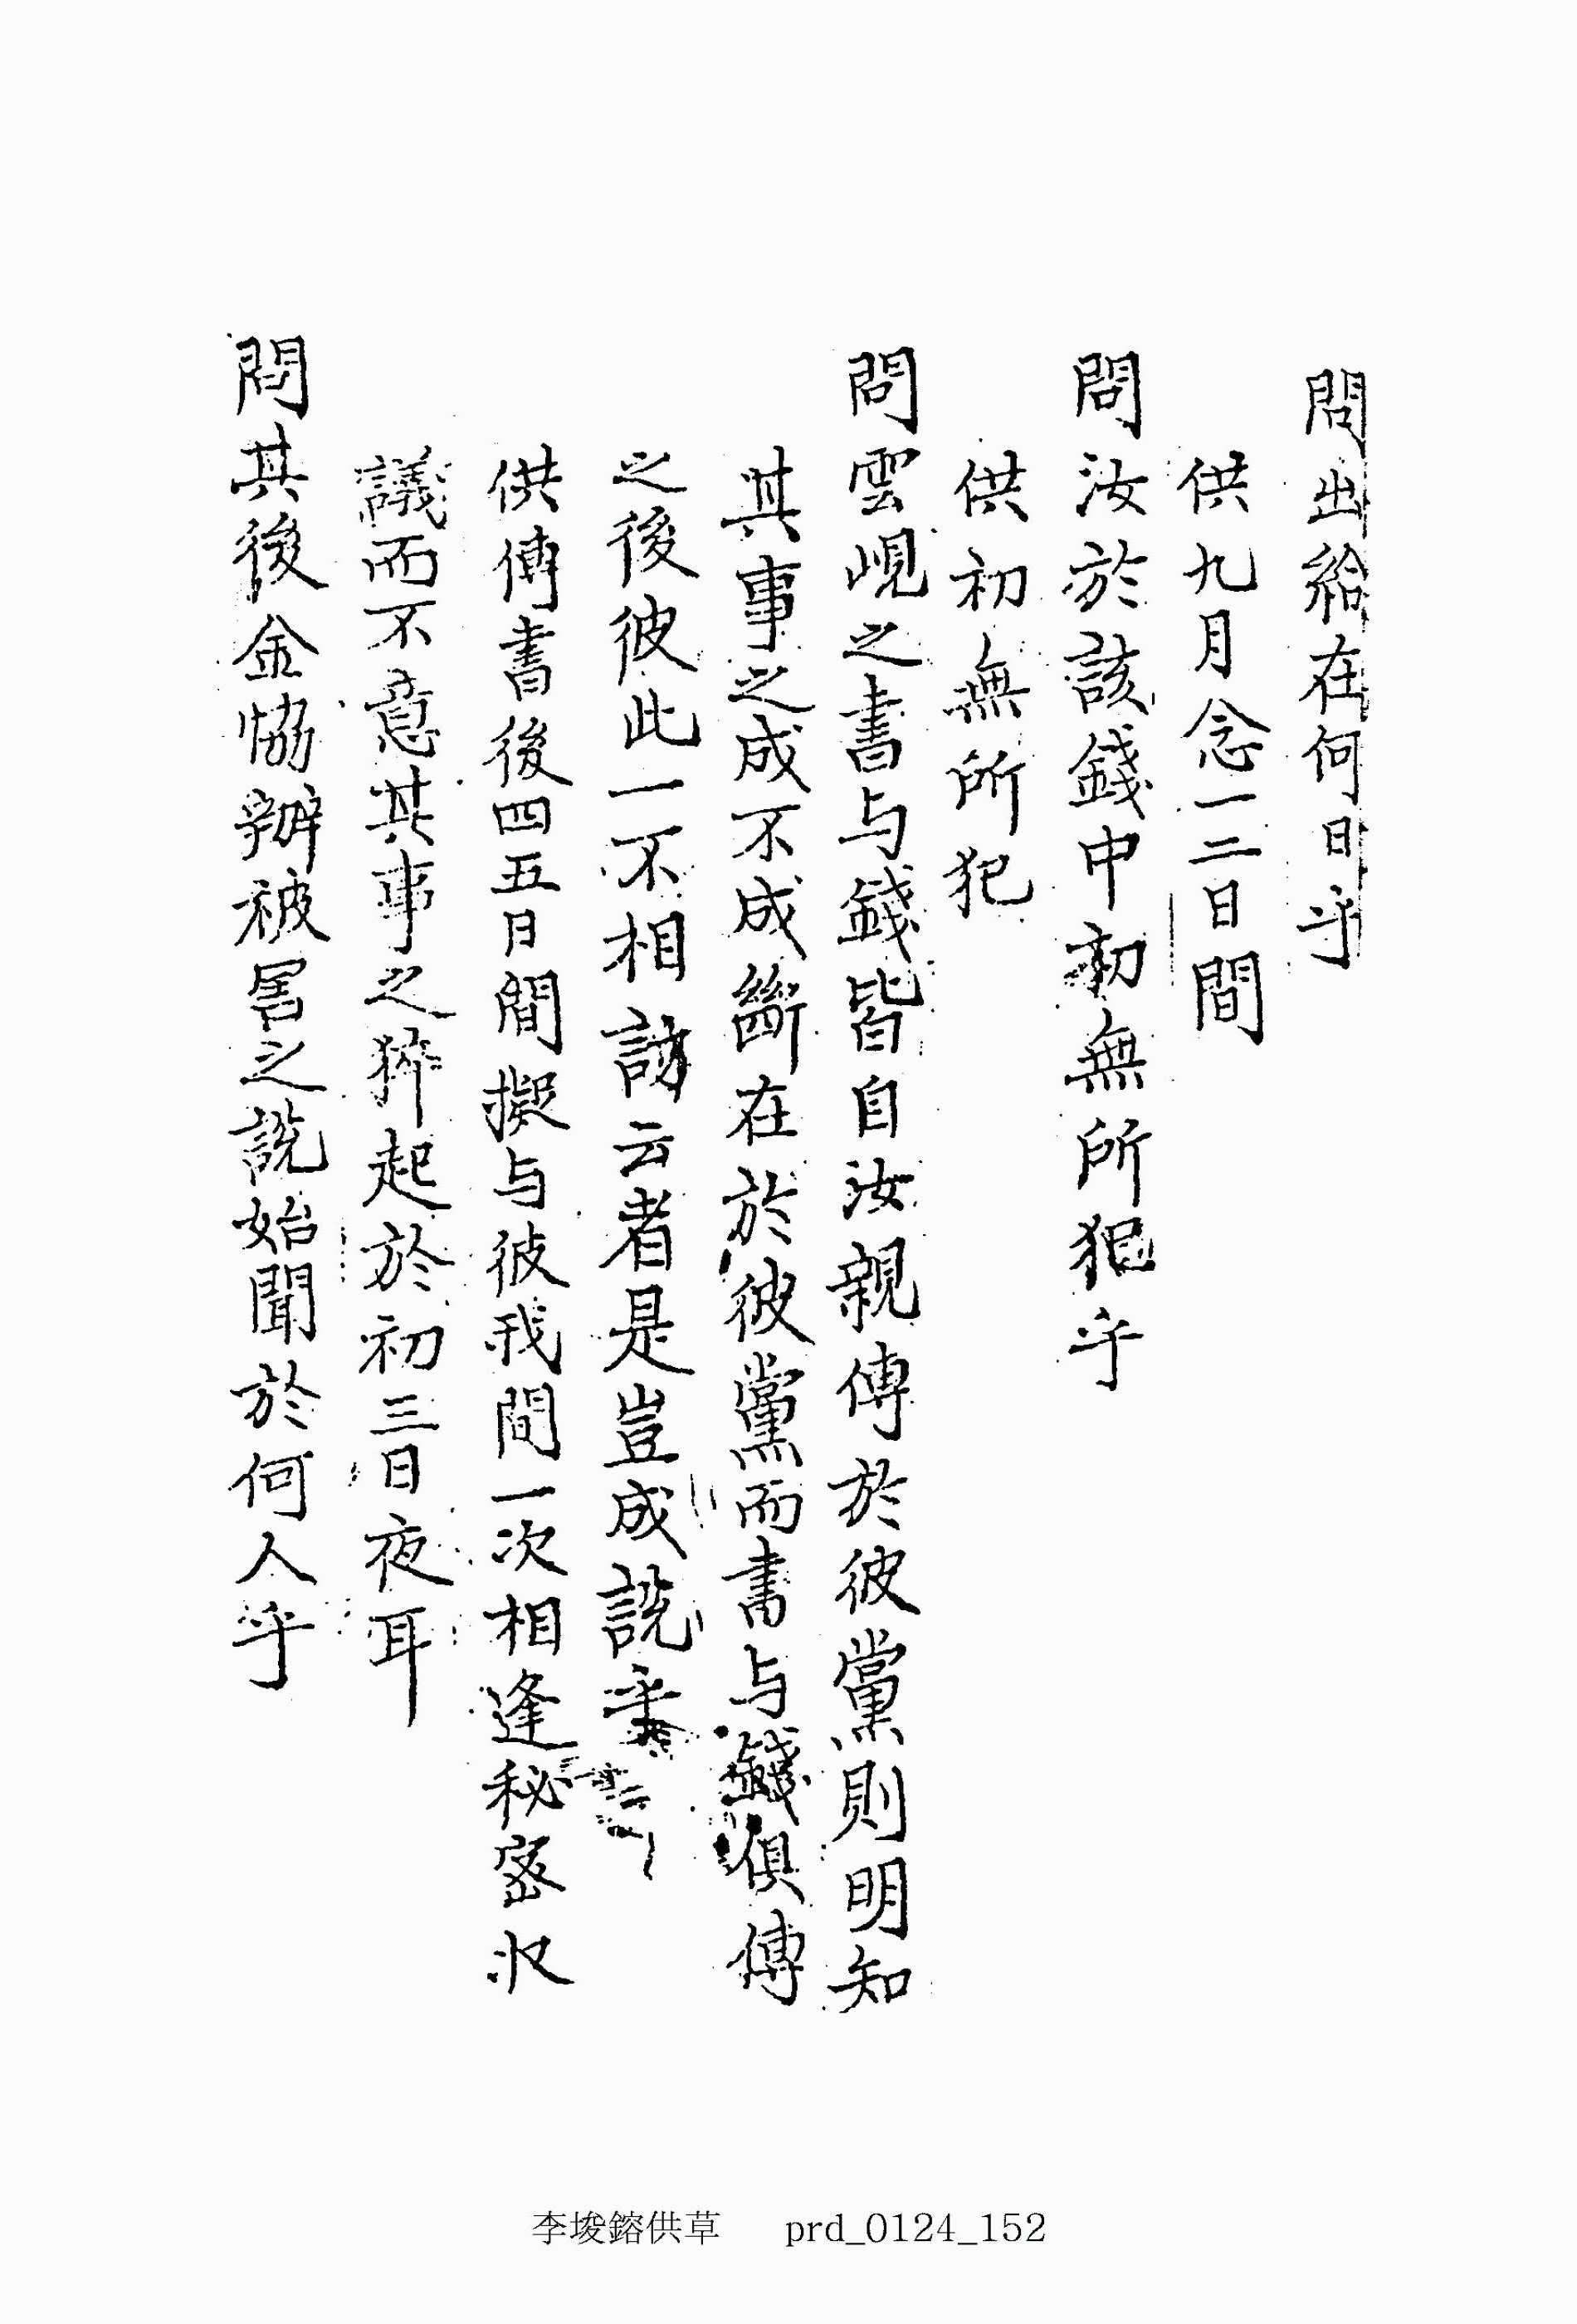 問出給在何日乎
供九月念一二日間
問汝於該錢中初無所犯乎
供初無所犯
問雲峴之書与錢皆自汝親傳於彼黨則明知
其事之成不成斷在於彼黨而書与錢俱傳
之後彼此一不相訪云者是豈成說乎
供傳書後四五日間擬与彼我間一次相逢秘密收
議而不意其事之猝起於初三日夜耳
問其後金協辦被害之說始聞於何人乎
李埈鎔供草 prd_0124_152